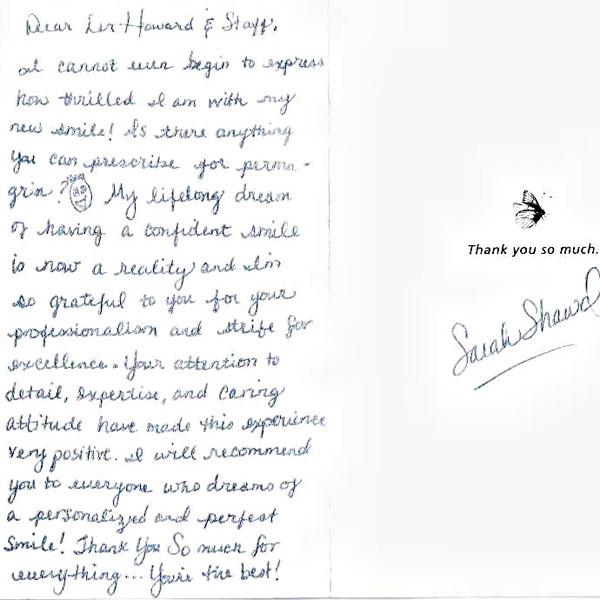 Dear Dr. Howard & Staff,
I cannot even begin to express
how thrilled I am with my
new smile! Is there anything
you can prescribe for perma-
grin? My lifelong dream
of having a confident smile
is now a reality and I'm
so grateful to you for your
professionalism and strife for
excellence. Your attention to
detail, expertise, and caring
attitude have made this experience
very positive. I will recommend
you to everyone who dreams of
a personalized and perfect
smile! Thank You So much for
everything... You're the best!
Thank you so much.
Sarah